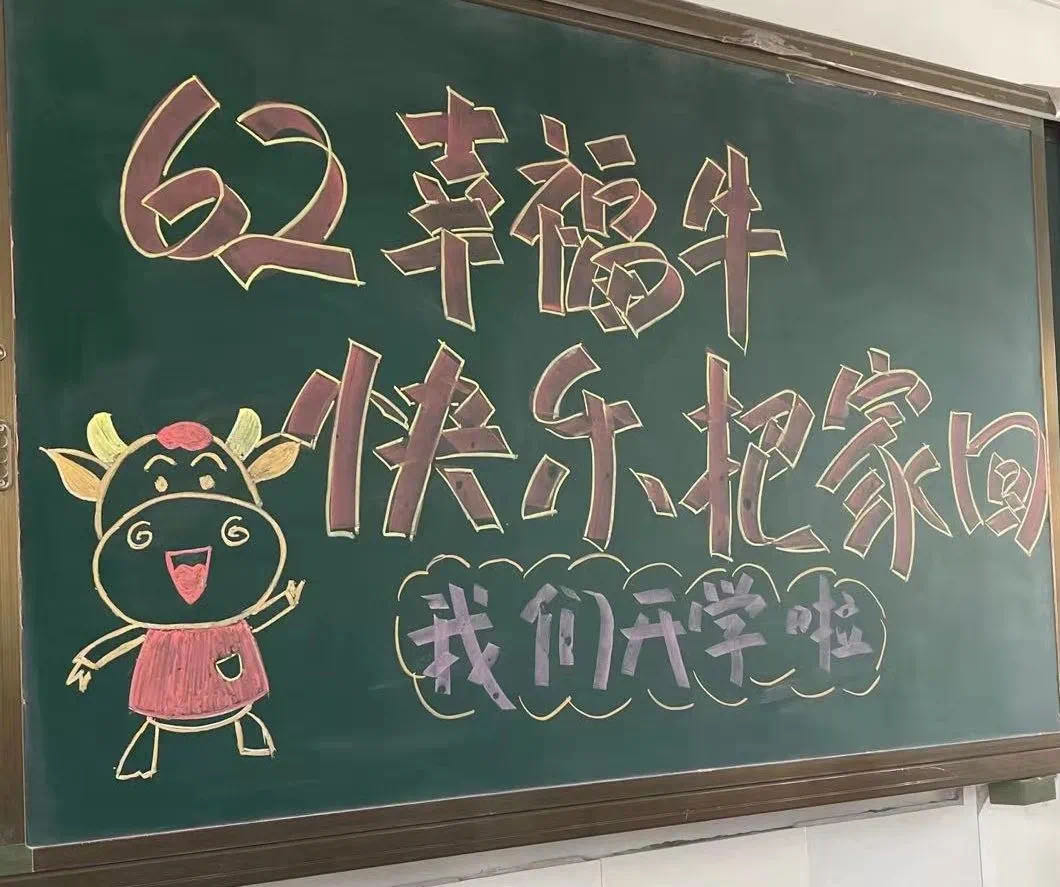 62幸福牛
快乐把家回
我们开学啦